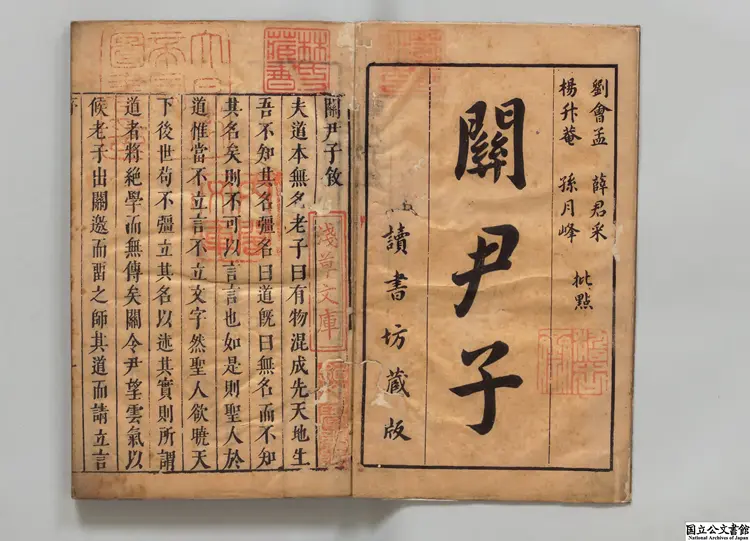 劉會孟 薛君采
楊升菴 孫月峰
批點
關尹子
讀書坊藏版
關尹子敘
夫道本無名老子曰有物混成先天地生
吾不知其名彊名曰道既曰無名而不知
其名矣則不可以言言也如是則聖人於
道惟當不立言不立文字然聖人欲曉天
下後世苟不彊立其名以迹其實則所謂
道者將絕學而無傳矣關令尹望雲氣以
候老子出關邀而畱之師其道而請立言
林氏藏書
淺草文庫
国立公文書館
National Archives of Japan